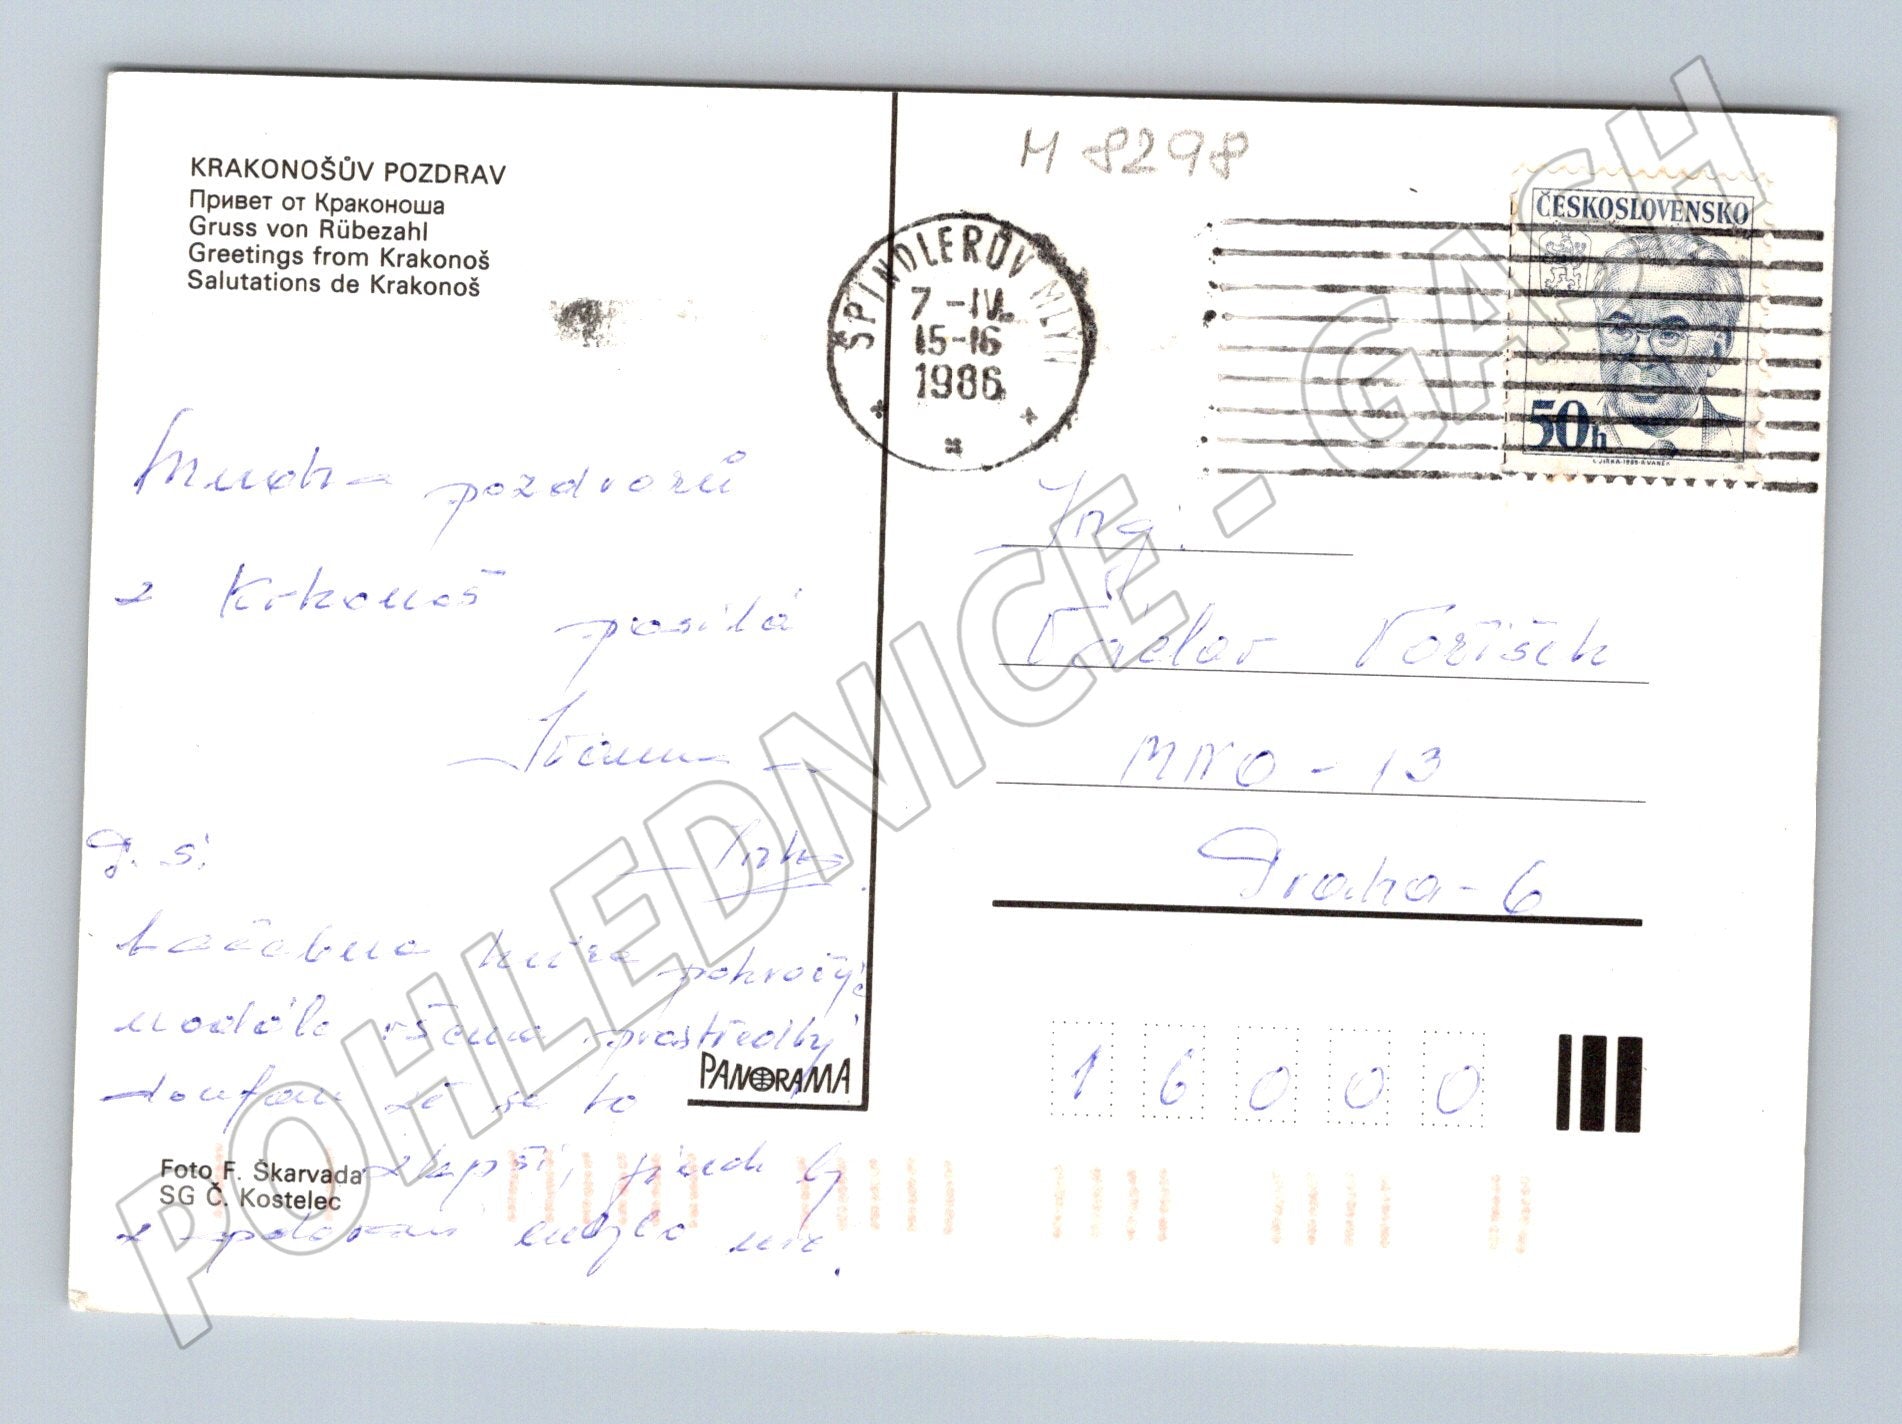 KRAKONOŠŮV POZDRAV
Привет от Краконоша
Gruss von Rübezahl
Greetings from Krakonoš
Salutations de Krakonoš
M 8298
ŠPINDLERŮV MLÝN
7 -IV.
15-16
1986
ČESKOSLOVENSKO
50h
Mnoho pozdravů
z Krkonoš posílá
Jirka
P. S.
Léčebná kúra pokračuje
nadále všemi prostředky
doufám že se to
zlepší, jinak by
z polovan nebylo nic.
PANORAMA
Foto F. Škarvada
SG Č. Kostelec
Ing.
Václav Voříšek
MNO - 13
Praha - 6
16000
POHLEDNICE - GASH